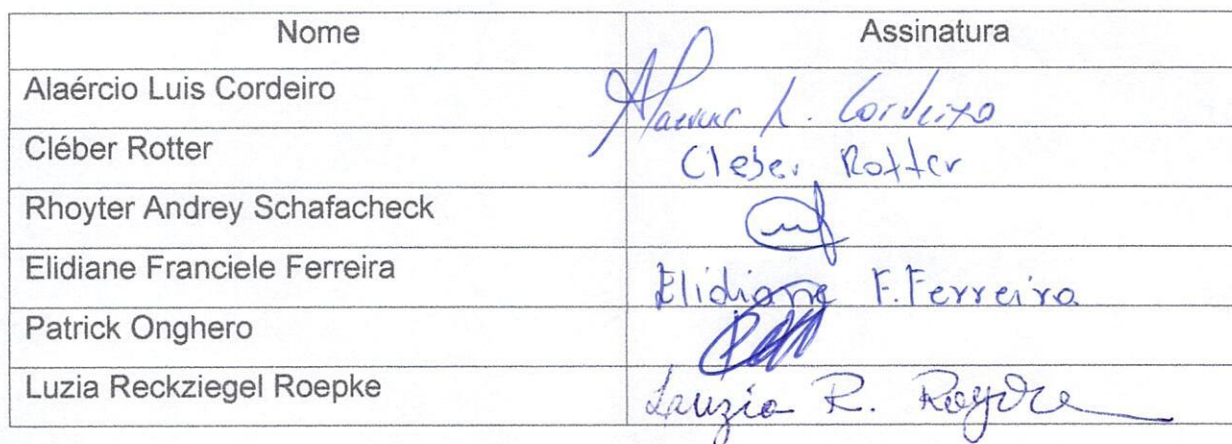 Nome Assinatura
Alaércio Luis Cordeiro L. Cordeiro
Cléber Rotter Cleber Rotter
Rhoyter Andrey Schafacheck
Elidiane Franciele Ferreira Elidiane F. Ferreira
Patrick Onghero
Luzia Reckziegel Roepke Luzia R.